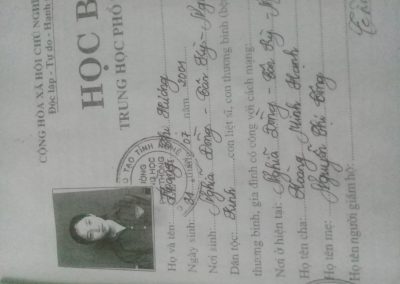 CỘNG HÒA XÃ HỘI CHỦ NGHĨ
Độc lập - Tự do - Hạnh
HỌC B
TRUNG HỌC PHỔ
Họ và tên: Hoàng Thị Hương
Ngày sinh: 31 tháng 07 năm 2001
Nơi sinh: Nghĩa Đồng - Tân Kỳ - Ng
Dân tộc: Kinh con liệt sĩ, con thương binh (bệ
thương binh, gia đình có công với cách mạng:
Nơi ở hiện tại: Nghĩa Đồng - Tân Kỳ - Ng
Họ tên cha: Hoàng Minh Thanh
Họ tên mẹ: Nguyễn Thị Hồng
Họ tên người giám hộ:
TẠO TỈNH NGHỆ